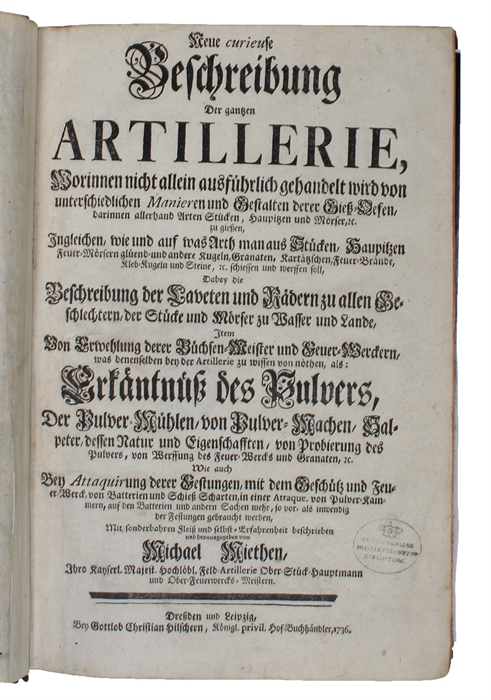 Neue curieuse
Beschreibung
Der gantzen
ARTILLERIE,
Worinnen nicht allein ausführlich gehandelt wird von
unterschiedlichen Manieren und Gestalten derer Gieß-Oefen,
darinnen allerhand Arten Stücken, Haupitzen und Mörser, &c.
zu giessen,
Ingleichen, wie und auf was Arth man aus Stücken, Haupitzen
Feuer-Mörsern glüend- und andere Kugeln, Granaten, Kartätzschen, Feuer-Brände,
Kleb-Kugeln und Steine, &c. schiessen und werffen soll,
Dabey die
Beschreibung der Laveten und Rädern zu allen Ge-
schlechtern, der Stücke und Mörser zu Wasser und Lande,
Item
Von Erwehlung derer Büchsen-Meister und Feuer-Werckern,
was denenselben bey der Artillerie zu wissen von nöthen, als:
Erkäntnüß des Pulvers,
Der Pulver-Mühlen, von Pulver-Machen, Sal-
peter, dessen Natur und Eigenschafften, von Probierung des
Pulvers, von Werffung des Feuer-Wercks und Granaten, &c.
Wie auch
Bey Attaquirung derer Festungen, mit dem Geschütz und Feu-
er-Werck, von Batterien und Schieß-Scharten, in einer Attaque, von Pulver-Kam-
mern, auf den Batterien und andern Sachen mehr, so vor- als inwendig
der Festungen gebraucht werden,
Mit sonderbahren Fleiß und selbst-Erfahrenheit beschrieben
und herausgegeben von
Michael Miethen,
Ihro Kayserl. Majest. Hochlöbl. Feld-Artillerie Ober-Stück-Hauptmann
und Ober-Feuerwercks-Meistern.
Dreßden und Leipzig,
Bey Gottlob Christian Hilschern, Königl. privil. Hof-Buchhändler, 1736.